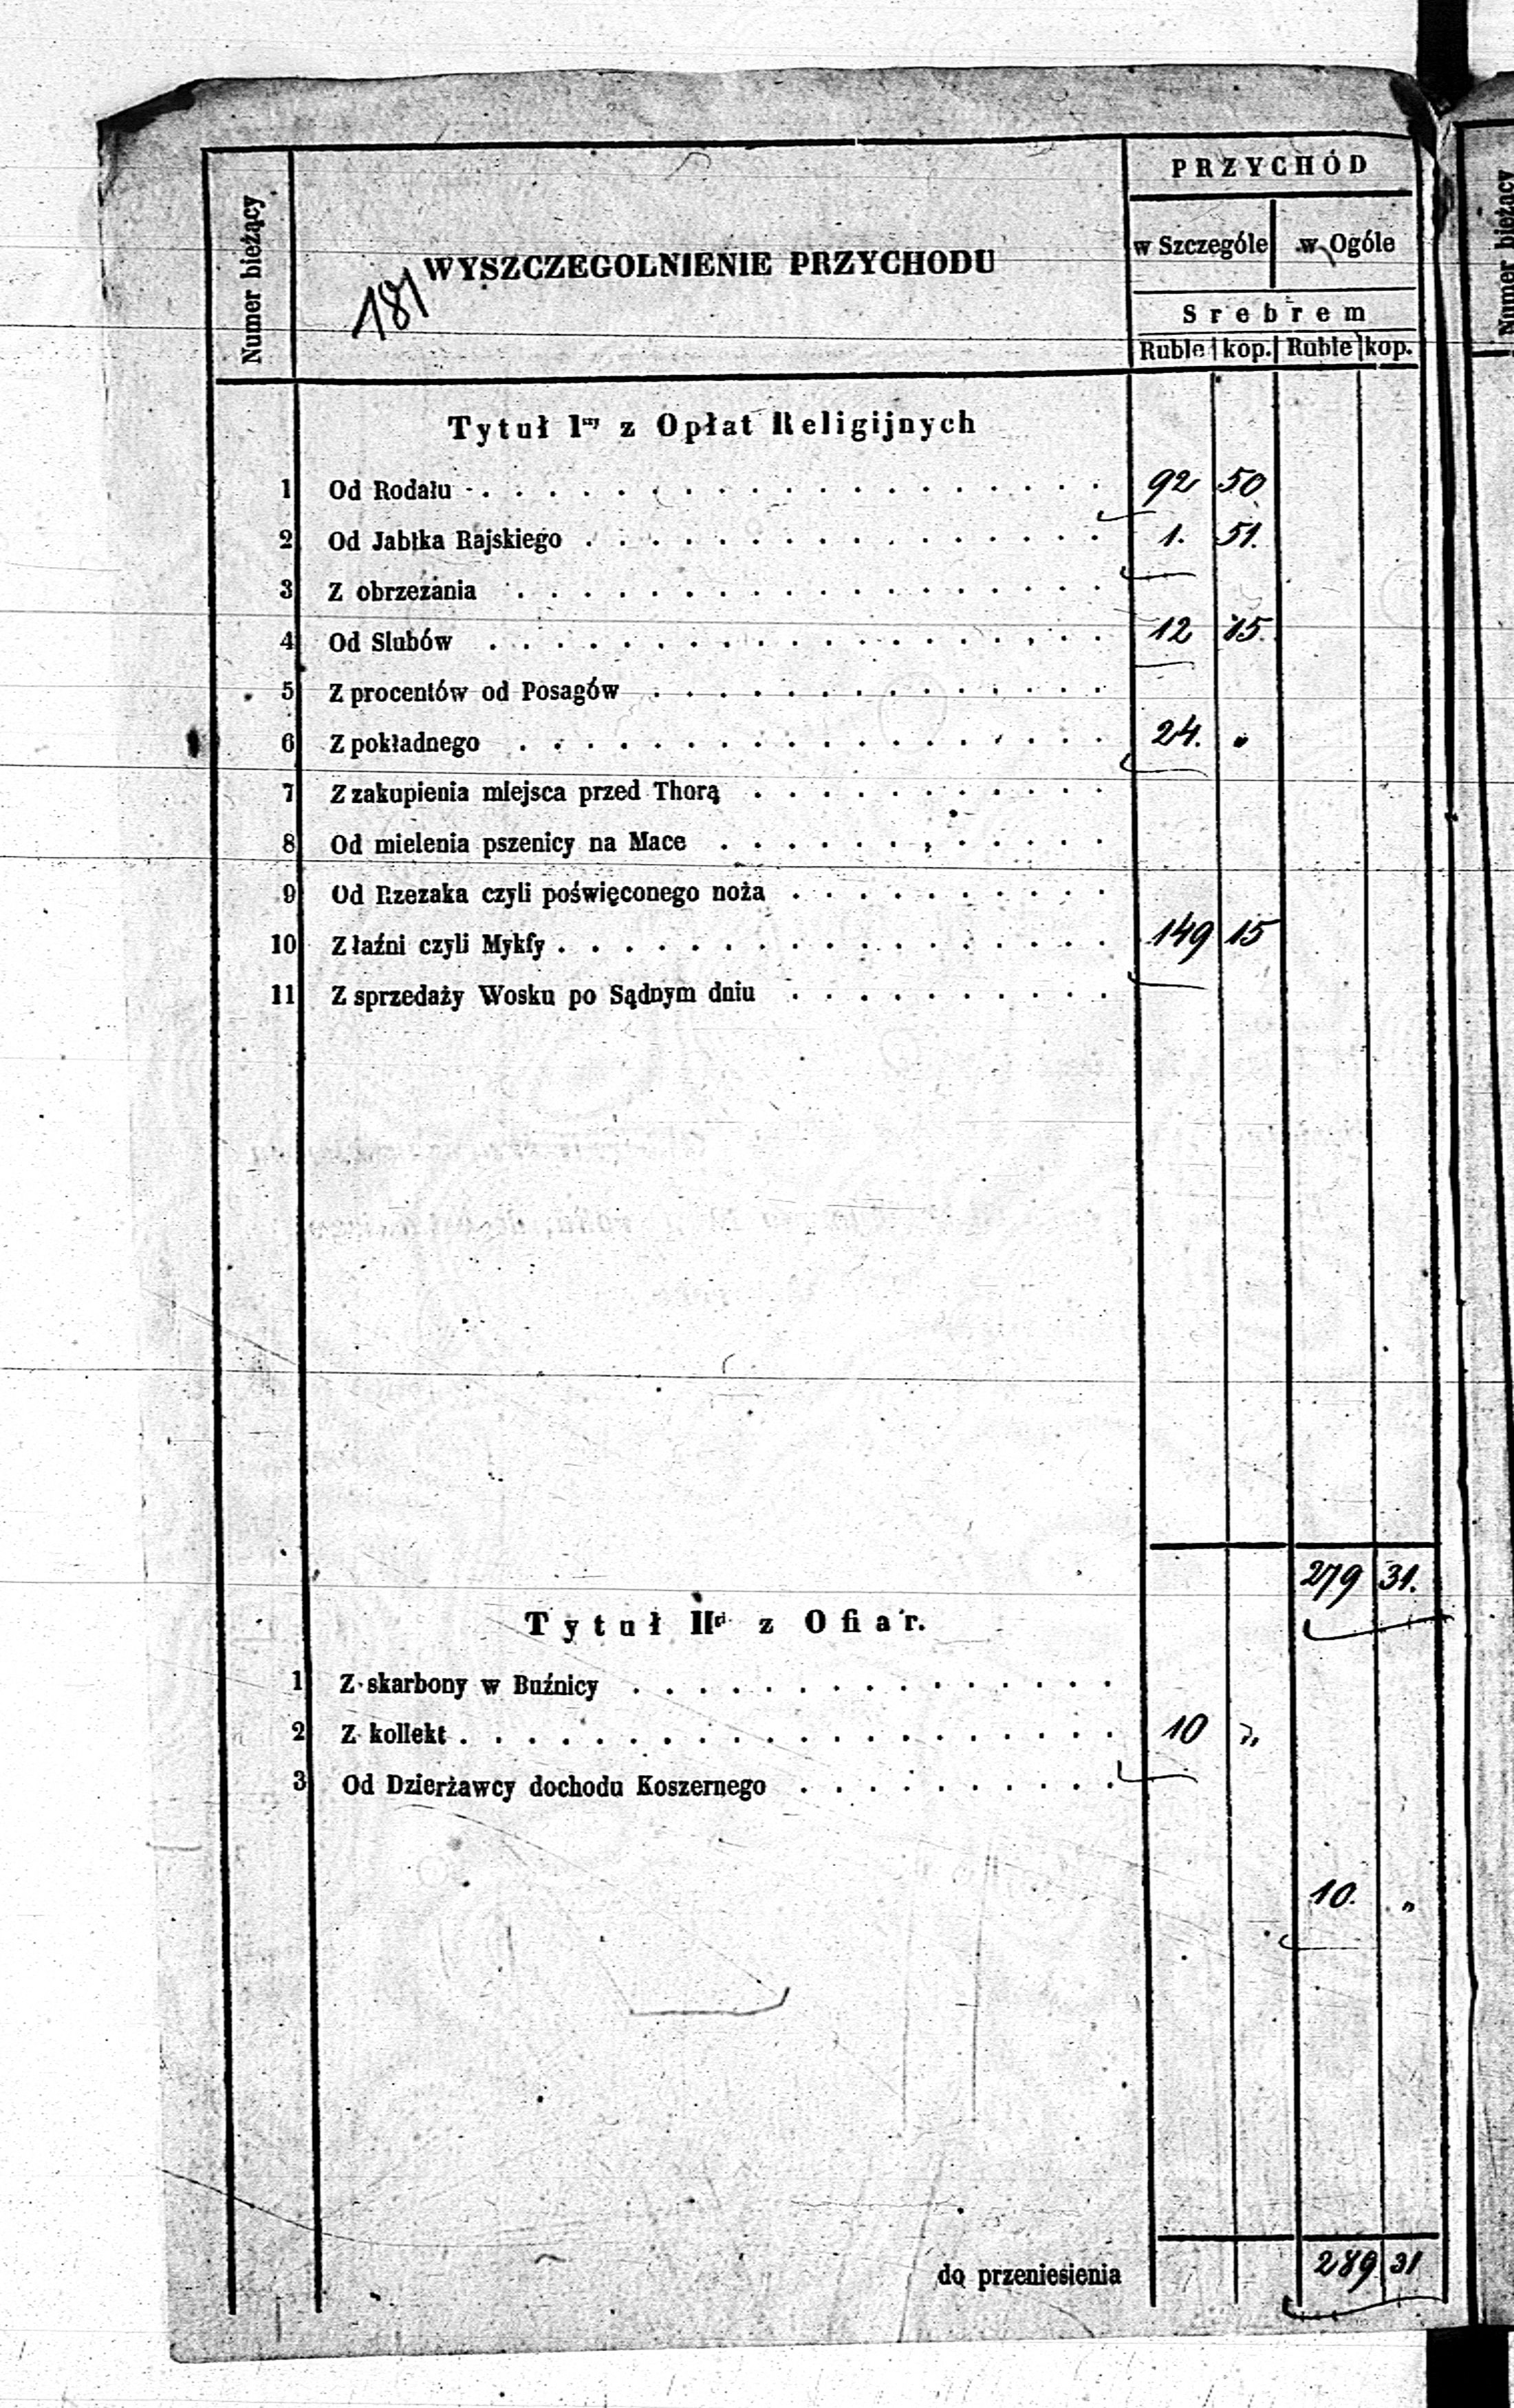 Numer bieżący
WYSZCZEGOLNIENIE PRZYCHODU
181
PRZYCHÓD
w Szczególe w Ogóle
Srebrem
Ruble kop. Ruble kop.
Tytuł Iszy z Opłat Religijnych
1 Od Rodału . . . . . . . . . . . . . . . . . . . 92 50
2 Od Jabłka Rajskiego . . . . . . . . . . . . . . . . 1. 51.
3 Z obrzezania . . . . . . . . . . . . . . . . . .
4 Od Slubów . . . . . . . . . . . . . . . . . . . 12 15.
5 Z procentów od Posagów . . . . . . . . . . . . . .
6 Z pokładnego . . . . . . . . . . . . . . . . . . 24. "
7 Z zakupienia miejsca przed Thorą . . . . . . . . . . .
8 Od mielenia pszenicy na Mace . . . . . . . . . . . .
9 Od Rzezaka czyli poświęconego noża . . . . . . . . . .
10 Z łaźni czyli Mykfy . . . . . . . . . . . . . . . . . 149 15
11 Z sprzedaży Wosku po Sądnym dniu . . . . . . . . . .
279 31.
Tytuł IIgi z Ofiar.
1 Z skarbony w Buźnicy . . . . . . . . . . . . . . .
2 Z kollekt . . . . . . . . . . . . . . . . . . . . 10 "
3 Od Dzierżawcy dochodu Koszernego . . . . . . . . . .
10. "
do przeniesienia 289 31
Numer bieżący